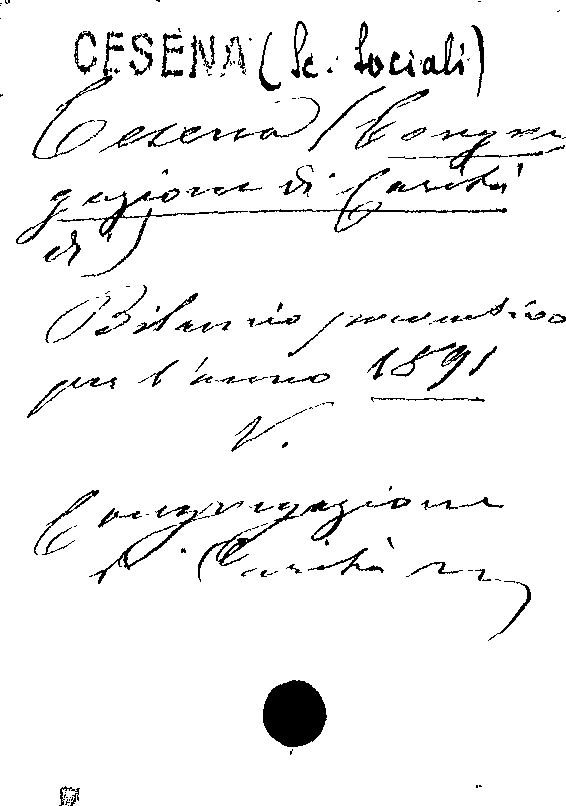 CESENA (Sc. Sociali)
Cesena (Congre
gazione di Carità
di)
Bilancio preventivo
per l'anno 1891
V.
Congregazione
di Carità